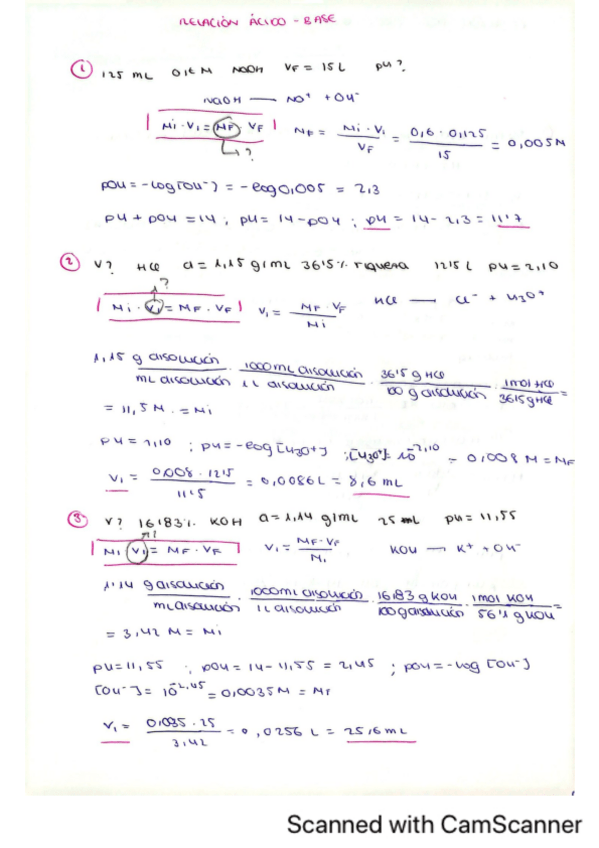 RELACIÓN ÁCIDO - BASE
① 125 mL 0,6 M NaOH VF = 15 L pH?
NaOH — Na⁺ + OH⁻
Mi · Vi = MF VF MF = Mi · Vi / VF = 0,6 · 0,125 / 15 = 0,005 M
?
pOH = -log[OH⁻] = -log 0,005 = 2,3
pH + pOH = 14 ; pH = 14 - pOH ; pH = 14 - 2,3 = 11'7
② V? HCl d = 1,15 g/mL 36'5% riqueza 12'5 L pH = 2,10
?
Mi · Vi = MF · VF Vi = MF · VF / Mi HCl — Cl⁻ + H3O⁺
1,15 g disolución / mL disolución · 1000 mL disolución / 1 L disolución · 36'5 g HCl / 100 g disolución · 1 mol HCl / 36'5 g HCl =
= 11,5 M = Mi
pH = 2,10 ; pH = -log [H3O+] ; [H3O⁺] = 10^-2,10 = 0,008 M = MF
Vi = 0,008 · 12'5 / 11'5 = 0,0086 L = 8,6 mL
③ V? 16'83% KOH d = 1,14 g/mL 25 mL pH = 11,55
?
Mi Vi = MF · VF Vi = MF · VF / Mi KOH — K⁺ + OH⁻
1'14 g disolución / mL disolución · 1000 mL disolución / 1 L disolución · 16'83 g KOH / 100 g disolución · 1 mol KOH / 56'1 g KOH =
= 3,42 M = Mi
pH = 11,55 ; pOH = 14 - 11,55 = 2,45 ; pOH = -log [OH⁻]
[OH⁻] = 10^-2,45 = 0,0035 M = MF
Vi = 0,035 · 25 / 3,42 = 0,0256 L = 25,6 mL
Scanned with CamScanner